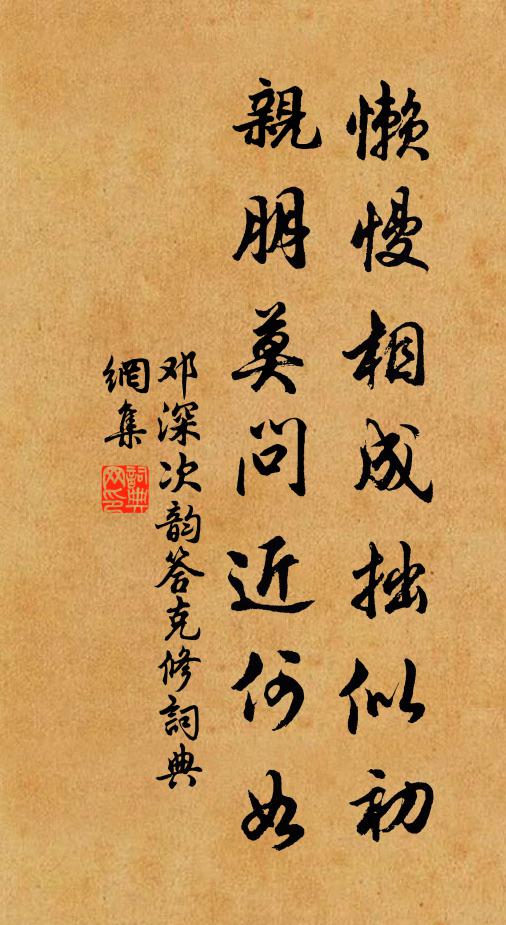 懒慢相成拙似初
親朋莫问近何如
邓深次韵答克修詞典
網集
詞典
网印